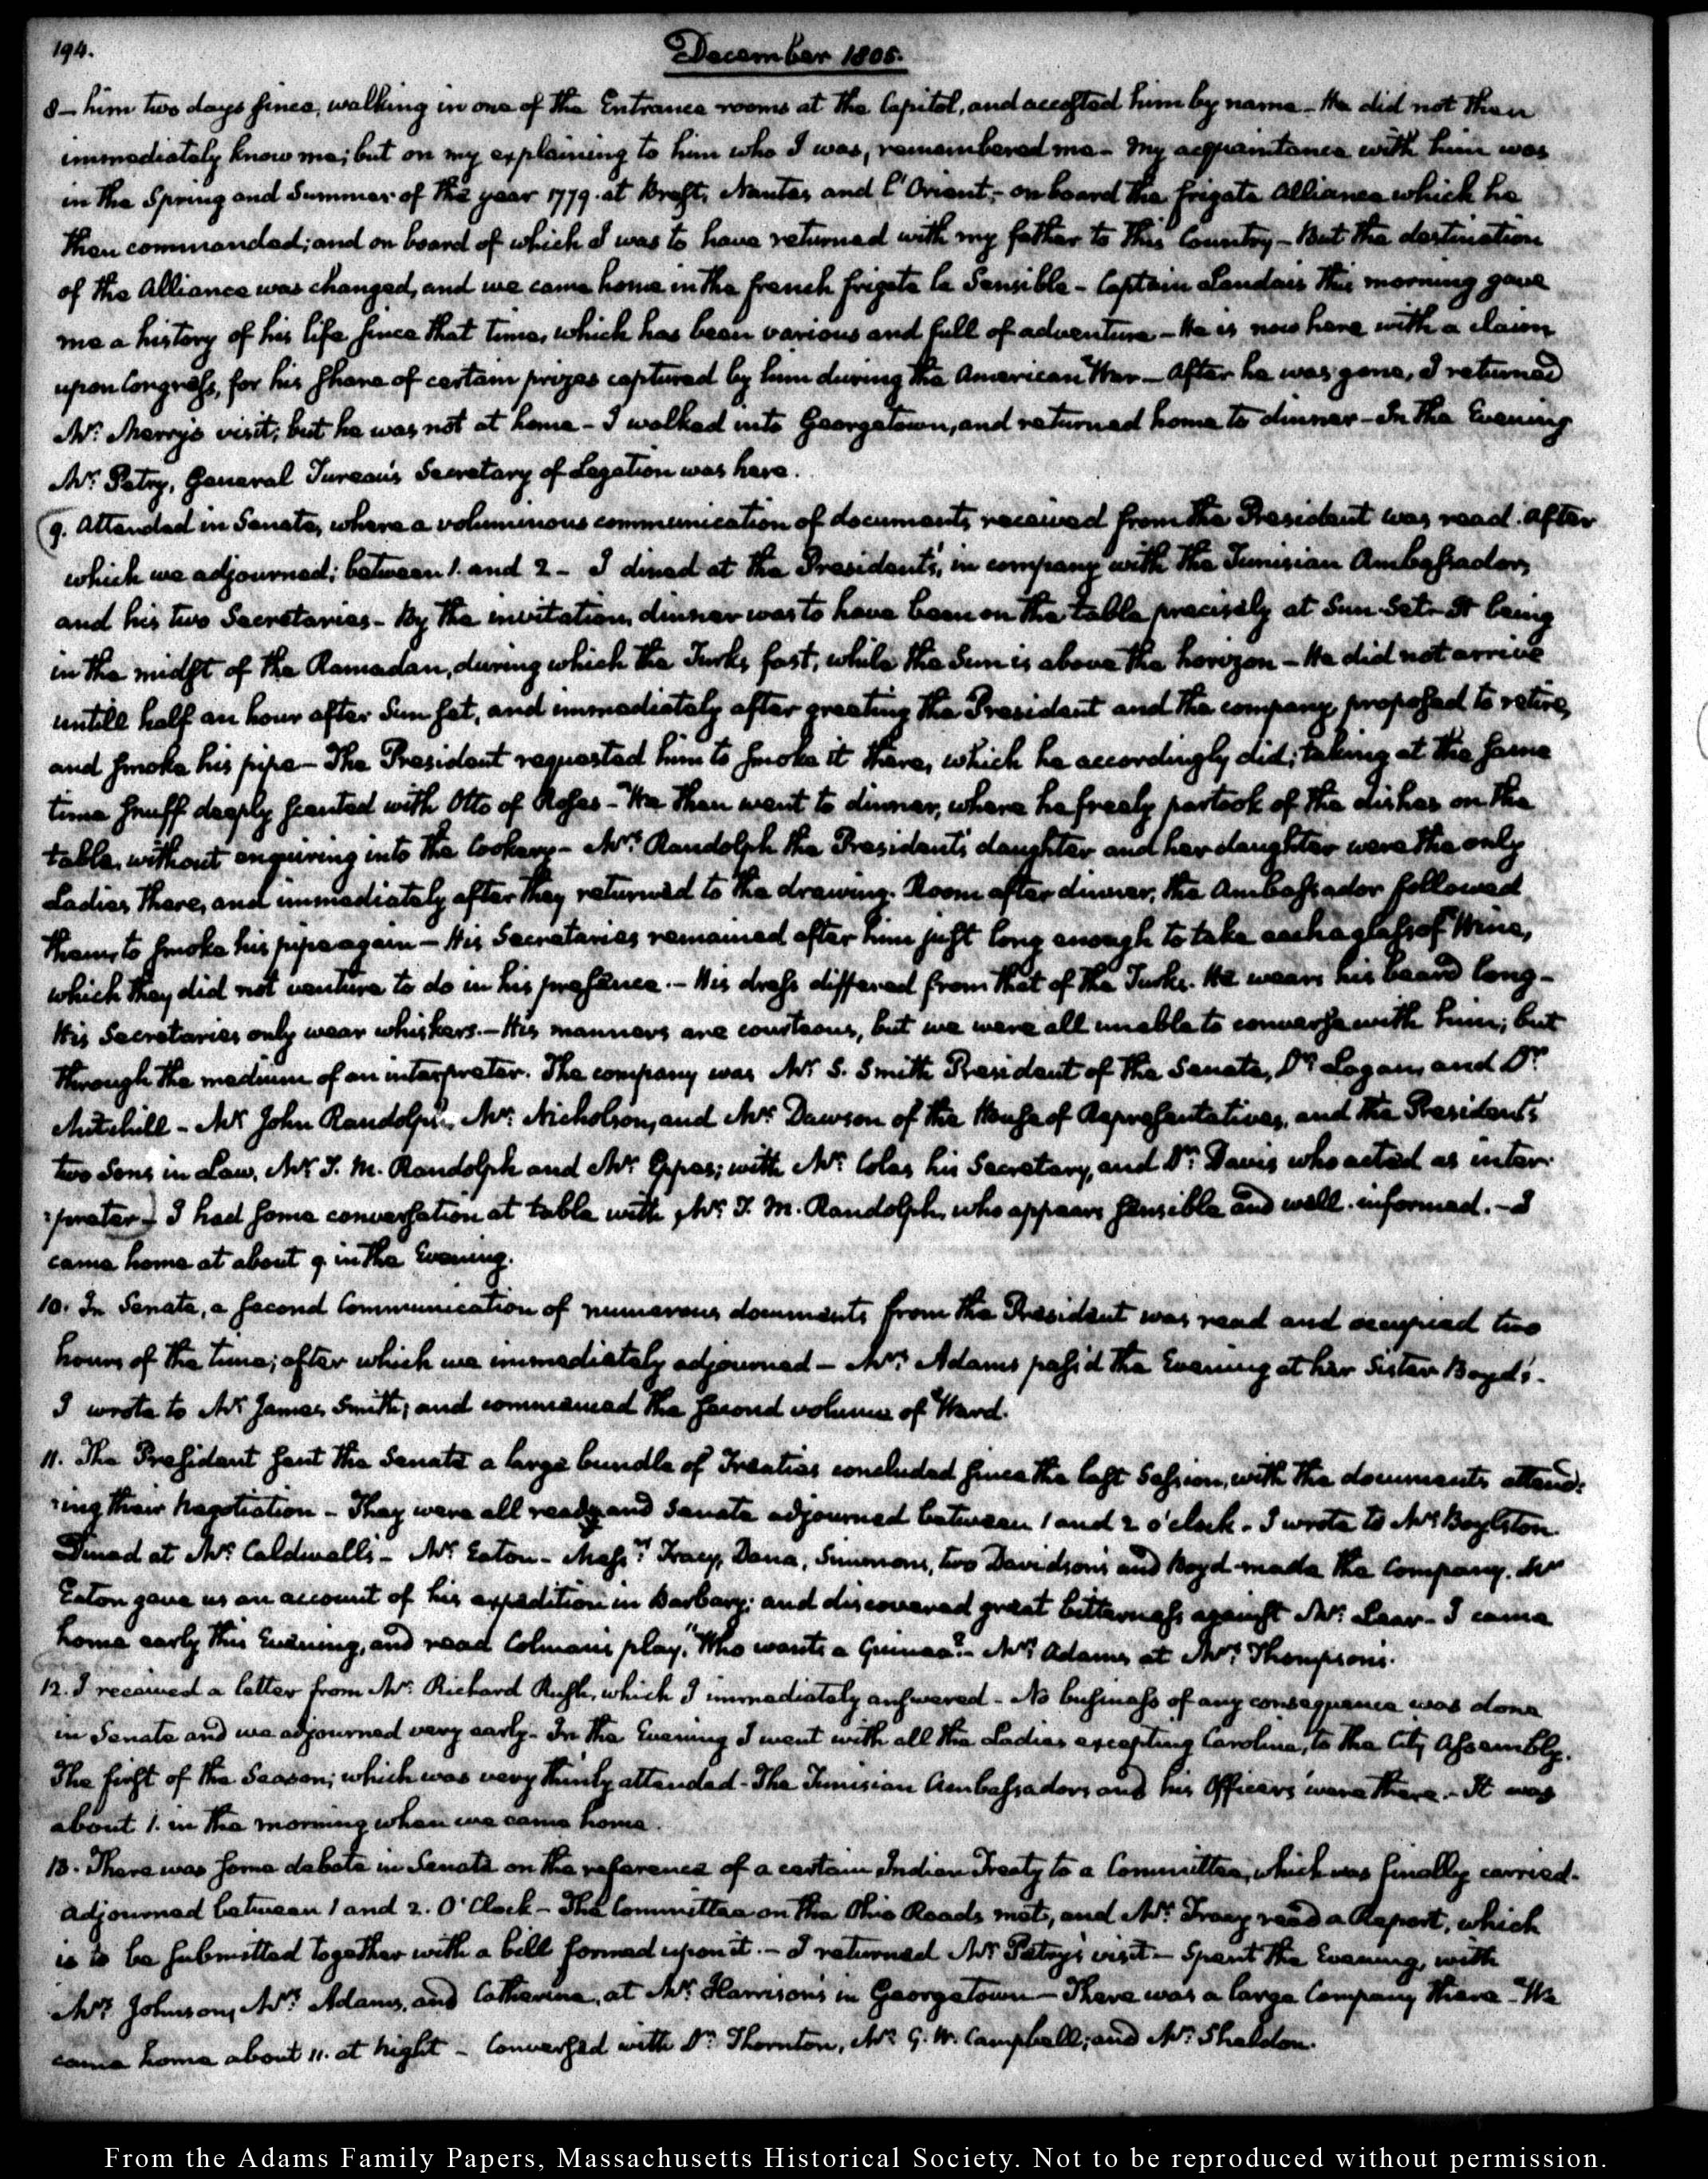 194.
December 1805.
8— him two days since, walking in one of the Entrance rooms at the Capitol, and accosted him by name— He did not then
immediately know me; but on my explaining to him who I was, remembered me— My acquaintance with him was
in the Spring and Summer of the year 1779. at Brest, Nantes and l'Orient;— on board the frigate Alliance which he
then commanded; and on board of which I was to have returned with my father to this Country— But the destination
of the Alliance was changed, and we came home in the french frigate la Sensible— Captain Landais this morning gave
me a history of his life since that time, which has been various and full of adventure— He is now here with a claim
upon Congress, for his share of certain prizes captured by him during the American War— After he was gone, I returned
Mr: Merry's visit; but he was not at home— I walked into Georgetown, and returned home to dinner— In the Evening
Mr: Petry, General Tureau's Secretary of Legation was here.
9. Attended in Senate, where a voluminous communication of documents received from the President was read. After
which we adjourned; between 1. and 2— I dined at the President's, in company with the Tunisian Ambassador,
and his two Secretaries— By the invitation, dinner was to have been on the table precisely at Sun-Set— It being
in the midst of the Ramadan, during which the Turks fast, while the Sun is above the horizon— He did not arrive
untill half an hour after Sun set, and immediately after greeting the President and the company, proposed to retire,
and smoke his pipe— The President requested him to smoke it there, which he accordingly did; taking at the same
time snuff deeply scented with Otto of Roses— We then went to dinner, where he freely partook of the dishes on the
table, without enquiring into the Cookery— Mrs: Randolph the President's daughter and her daughter were the only
Ladies there, and immediately after they returned to the drawing-Room after dinner, the Ambassador followed
them, to smoke his pipe again— His Secretaries remained after him just long enough to take each a glass of Wine,
which they did not venture to do in his presence.— His dress differed from that of the Turks. He wears his beard long—
His Secretaries only wear whiskers.— His manners are courteous, but we were all unable to converse with him; but
through the medium of an interpreter. The company was Mr S. Smith President of the Senate, Dr Logan, and Dr:
Mitchill— Mr John Randolph, Mr: Nicholson, and Mr: Dawson of the House of Representatives, and the President's
two Sons in Law, Mr T. M. Randolph and Mr Eppes; with Mr: Coles his Secretary, and Dr: Davis who acted as inter-
:preter) I had some conversation at table with Mr: T. M. Randolph, who appears sensible and well-informed.— I
came home at about 9 in the Evening.
10. In Senate, a second Communication of numerous documents from the President was read and occupied two
hours of the time; after which we immediately adjourned— Mrs: Adams pass'd the Evening at her Sister Boyd's.—
I wrote to Mr James Smith; and commenced the second volume of Ward.
11. The President sent the Senate a large bundle of Treaties concluded since the last Session, with the documents attend:
:ing their negotiation— They were all read, and Senate adjourned between 1 and 2 o'clock. I wrote to Mr: Boylston.
Dined at Mr: Caldwell's— Mr: Eaton— Messrs: Tracy, Dana, Simmons, two Davidson's and Boyd made the Company. Mr
Eaton gave us an account of his expedition in Barbary; and discovered great bitterness against Mr: Lear— I came
home early this Evening, and read Colman's play, "Who wants a Guinea?"— Mrs: Adams at Mrs: Thompson's.
12. I received a letter from Mr: Richard Rush, which I immediately answered— No business of any consequence was done
in Senate and we adjourned very early— In the Evening I went with all the Ladies excepting Caroline, to the City Assembly.
The first of the Season; which was very thinly attended— The Tunisian Ambassador and his Officers were there.— It was
about 1. in the morning when we came home.
13. There was some debate in Senate on the reference of a certain Indian Treaty to a Committee, which was finally carried.
Adjourned between 1 and 2. O'Clock— The Committee on the Ohio Roads met, and Mr: Tracy read a Report, which
is to be submitted together with a bill formed upon it.— I returned Mr: Petry's visit— Spent the Evening, with
Mrs: Johnson, Mrs: Adams, and Catherine, at Mr: Harrison's in Georgetown— There was a large Company there— We
came home about 11. at Night— Conversed with Dr: Thornton, Mr: G. W. Campbell; and Mr: Sheldon.
From the Adams Family Papers, Massachusetts Historical Society. Not to be reproduced without permission.